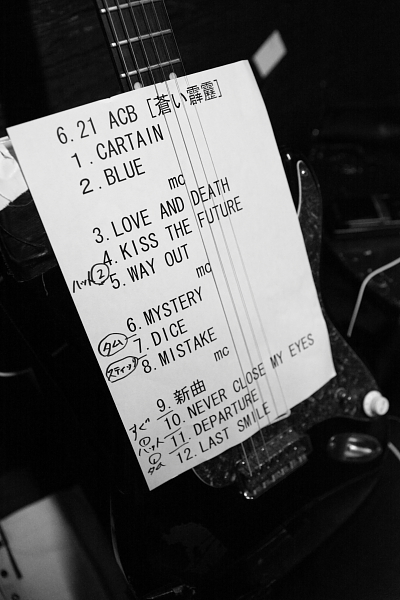 6.21 ACB [蒼い霹靂]
1. CARTAIN
2. BLUE
mc
3. LOVE AND DEATH
4. KISS THE FUTURE
ハット② 5. WAY OUT
mc
6. MYSTERY
タム 7. DICE
スティック 8. MISTAKE
mc
9. 新曲
すぐ 10. NEVER CLOSE MY EYES
① ハット 11. DEPARTURE
① タム 12. LAST SMILE